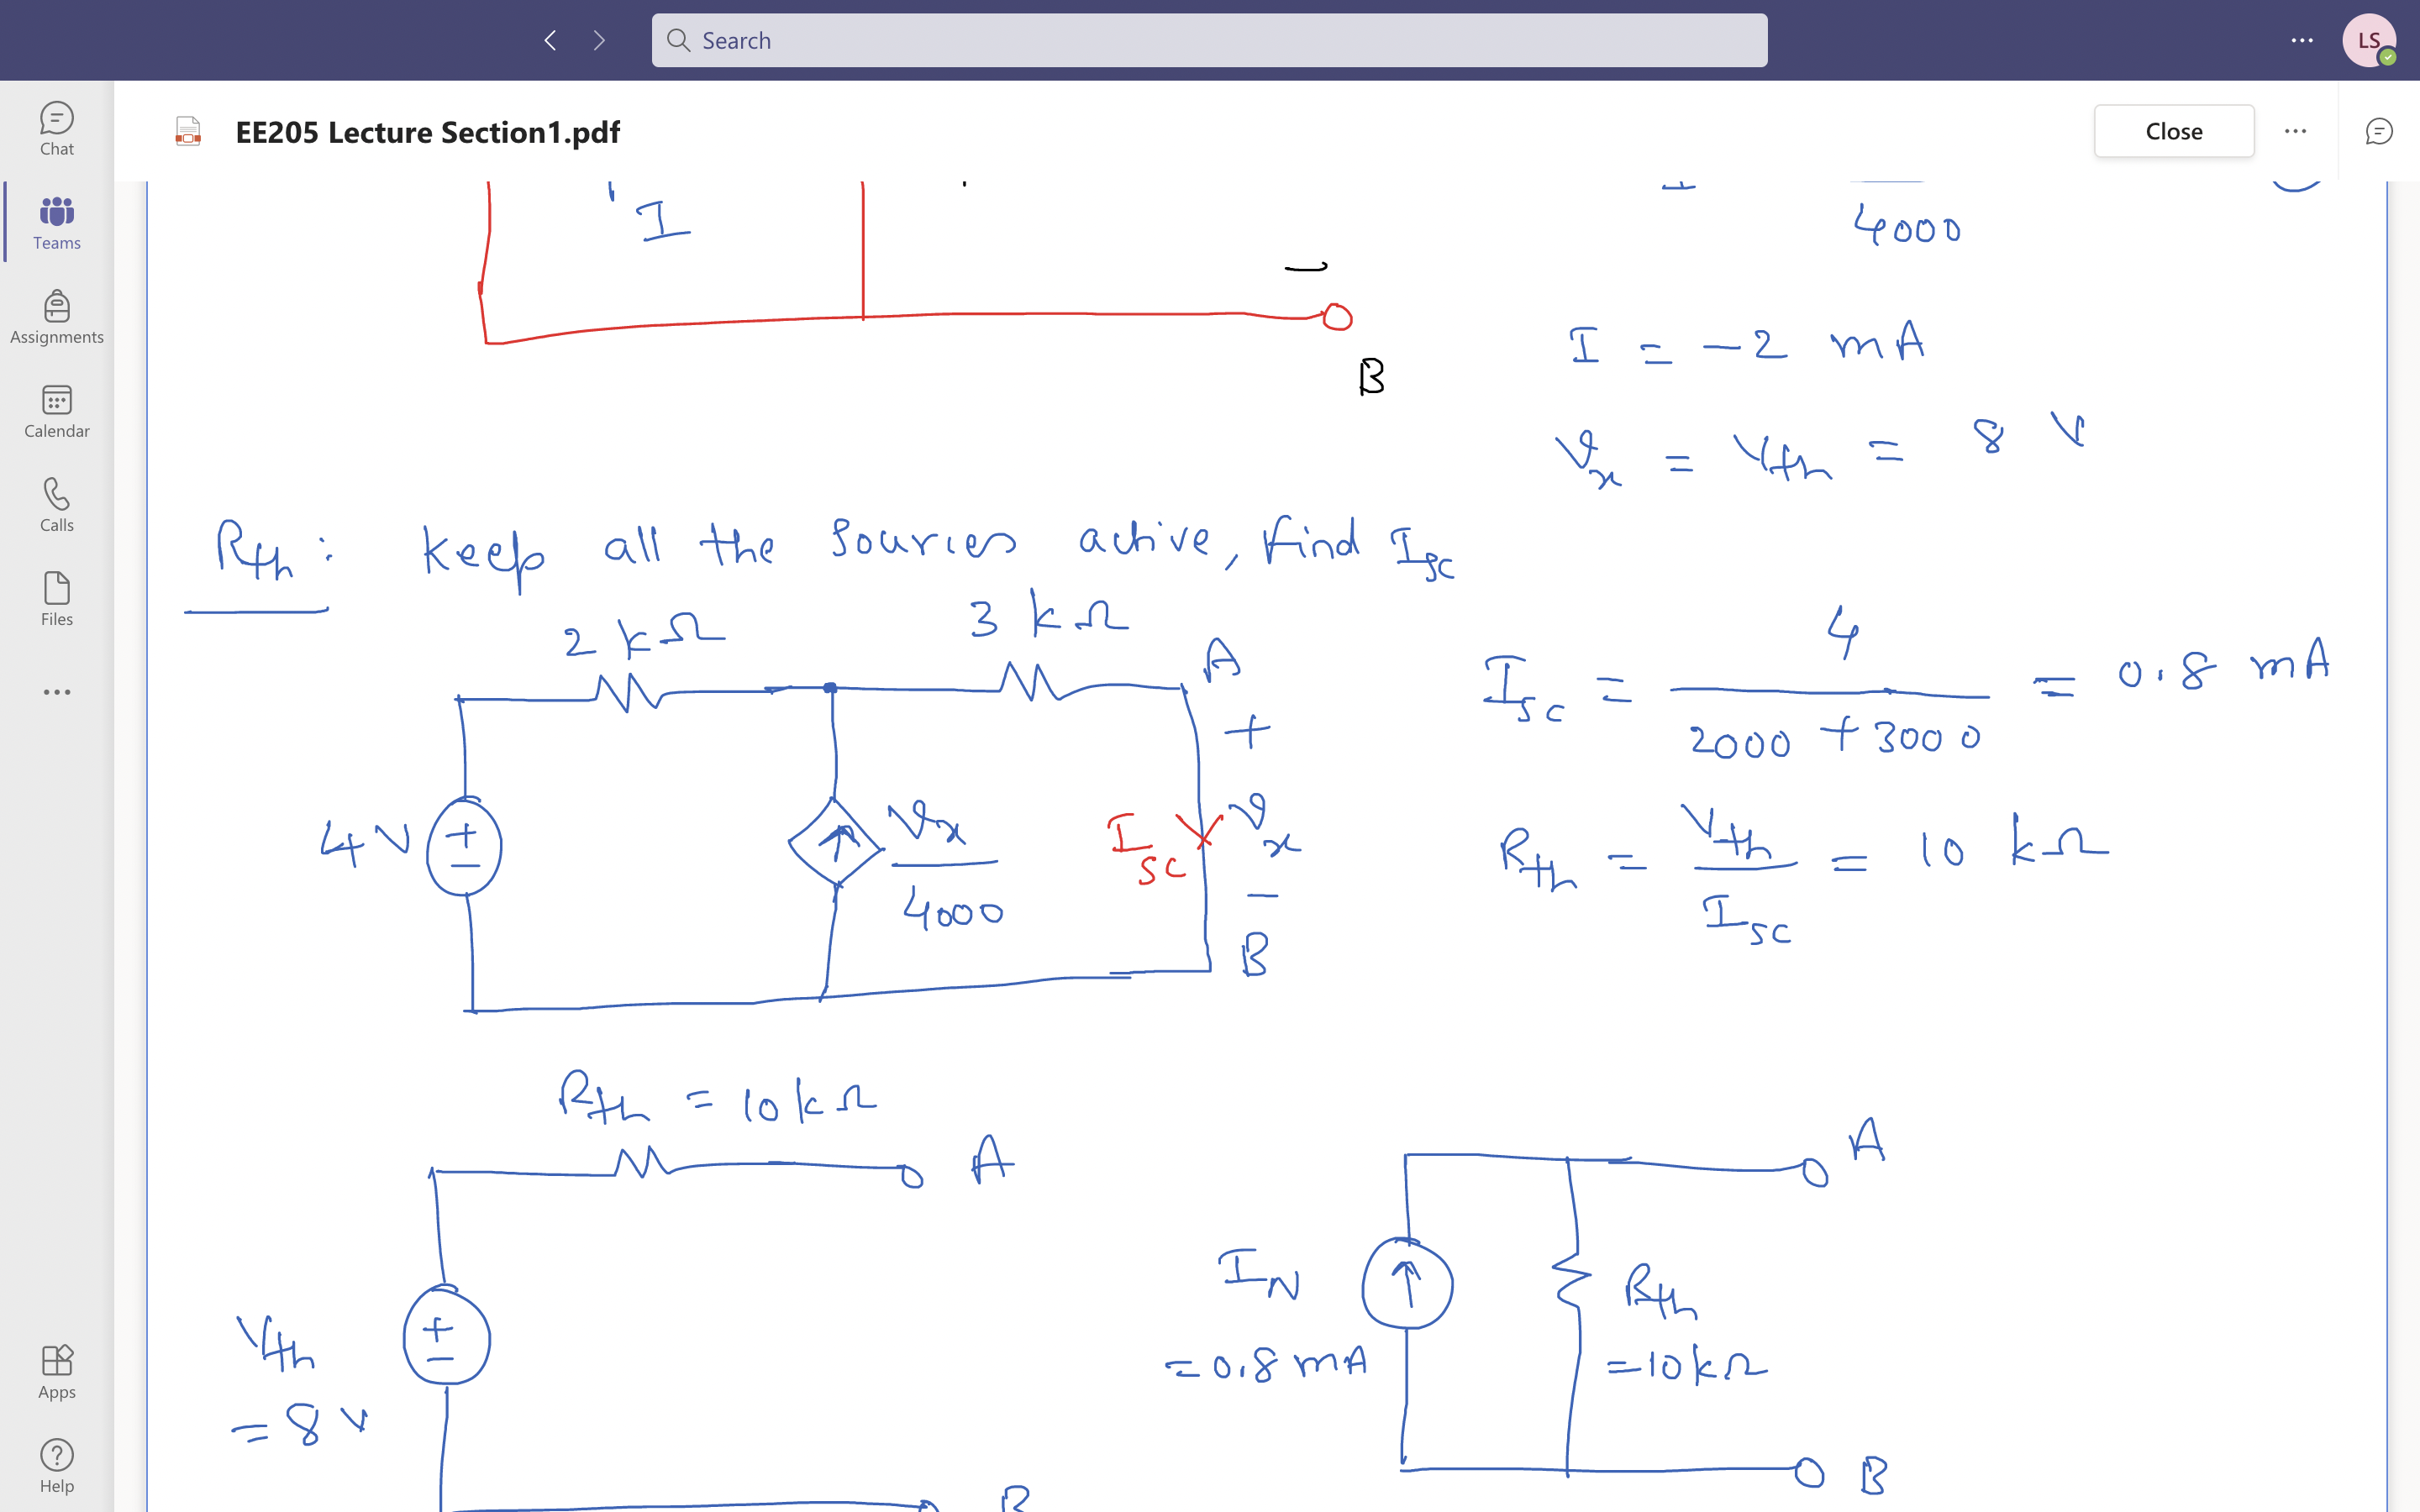 Search
LS
Chat
Teams
Assignments
Calendar
Calls
Files
Apps
Help
EE205 Lecture Section1.pdf
Close
I
4000
B
I = -2 mA
vx = Vth = 8 V
Rth : Keep all the sources active, find Isc
2 kΩ
3 kΩ
A
+
4 V
+
-
vx
4000
Isc
vx
-
B
Isc = 4 / 2000 + 3000 = 0.8 mA
Rth = Vth / Isc = 10 kΩ
Rth = 10 kΩ
A
Vth
= 8 V
+
-
B
A
IN
= 0.8 mA
Rth
= 10 kΩ
B